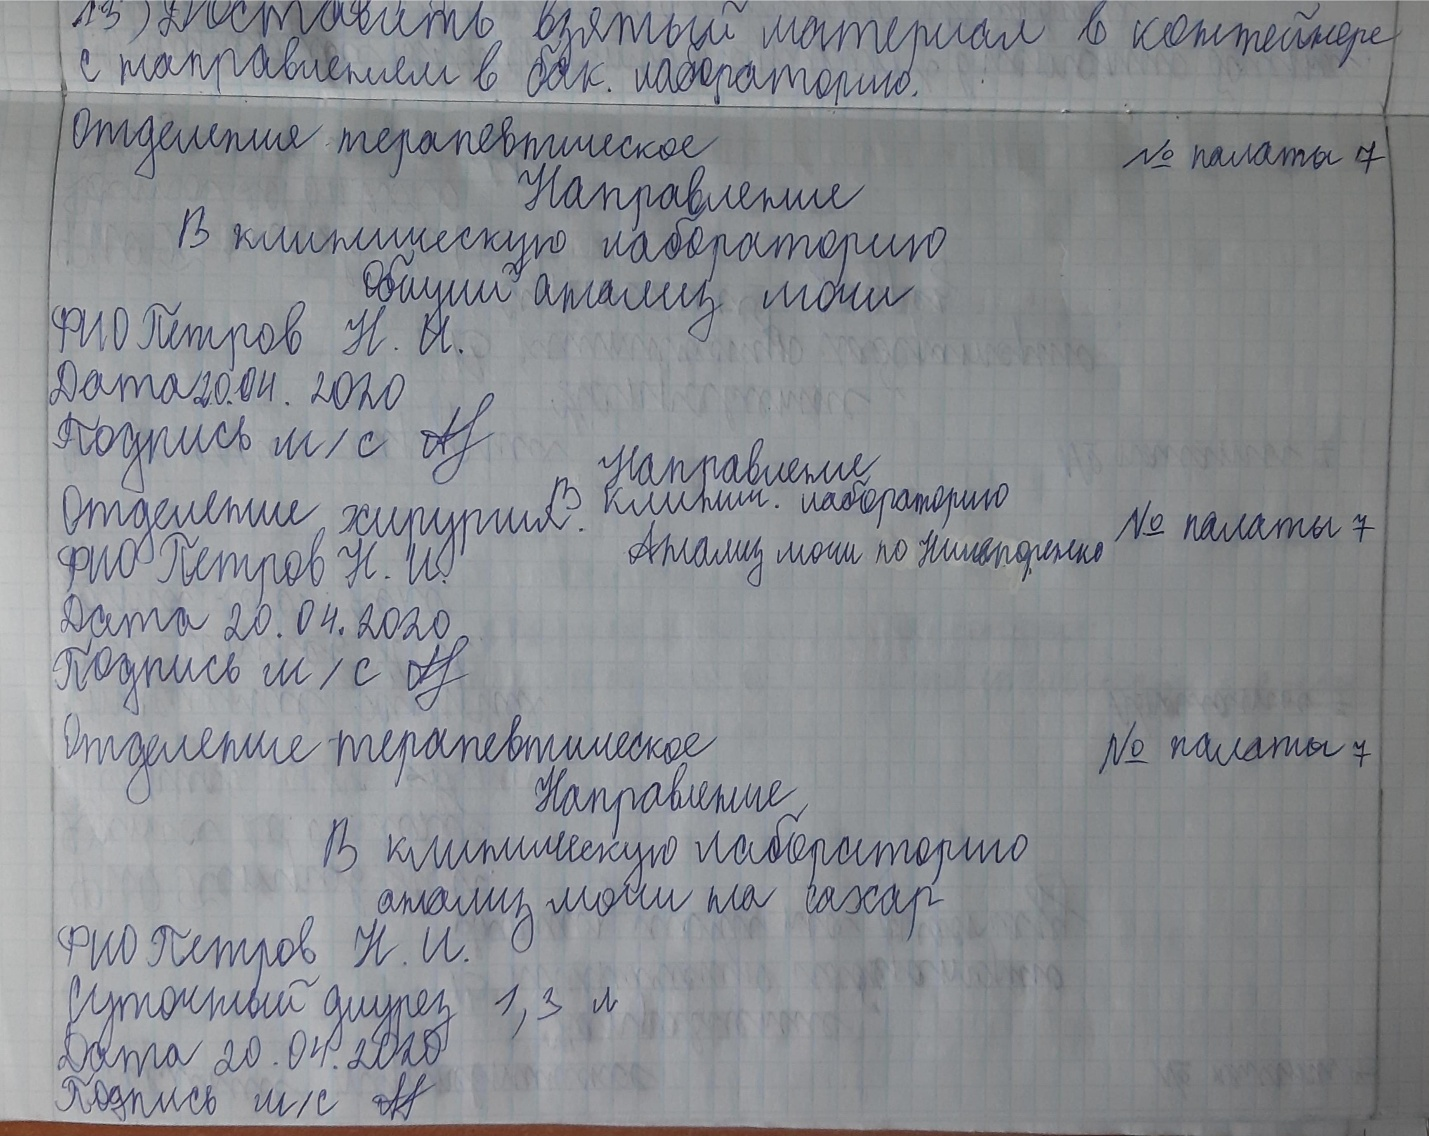 13) Доставить взятый материал в контейнере
с направлением в бак. лабораторию.
Отделение терапевтическое № палаты 7
Направление
В клиническую лабораторию
Общий анализ мочи
ФИО Петров Н. И.
Дата 20.04. 2020
Подпись м/с
Направление
Отделение хирургия. В клинич. лабораторию № палаты 7
ФИО Петров Н. И. Анализ мочи по Ничепоренко
Дата 20.04.2020
Подпись м/с
Отделение терапевтическое № палаты 7
Направление
В клиническую лабораторию
анализ мочи на сахар
ФИО Петров Н. И.
Суточный диурез 1,3 л
Дата 20.04.2020
Подпись м/с